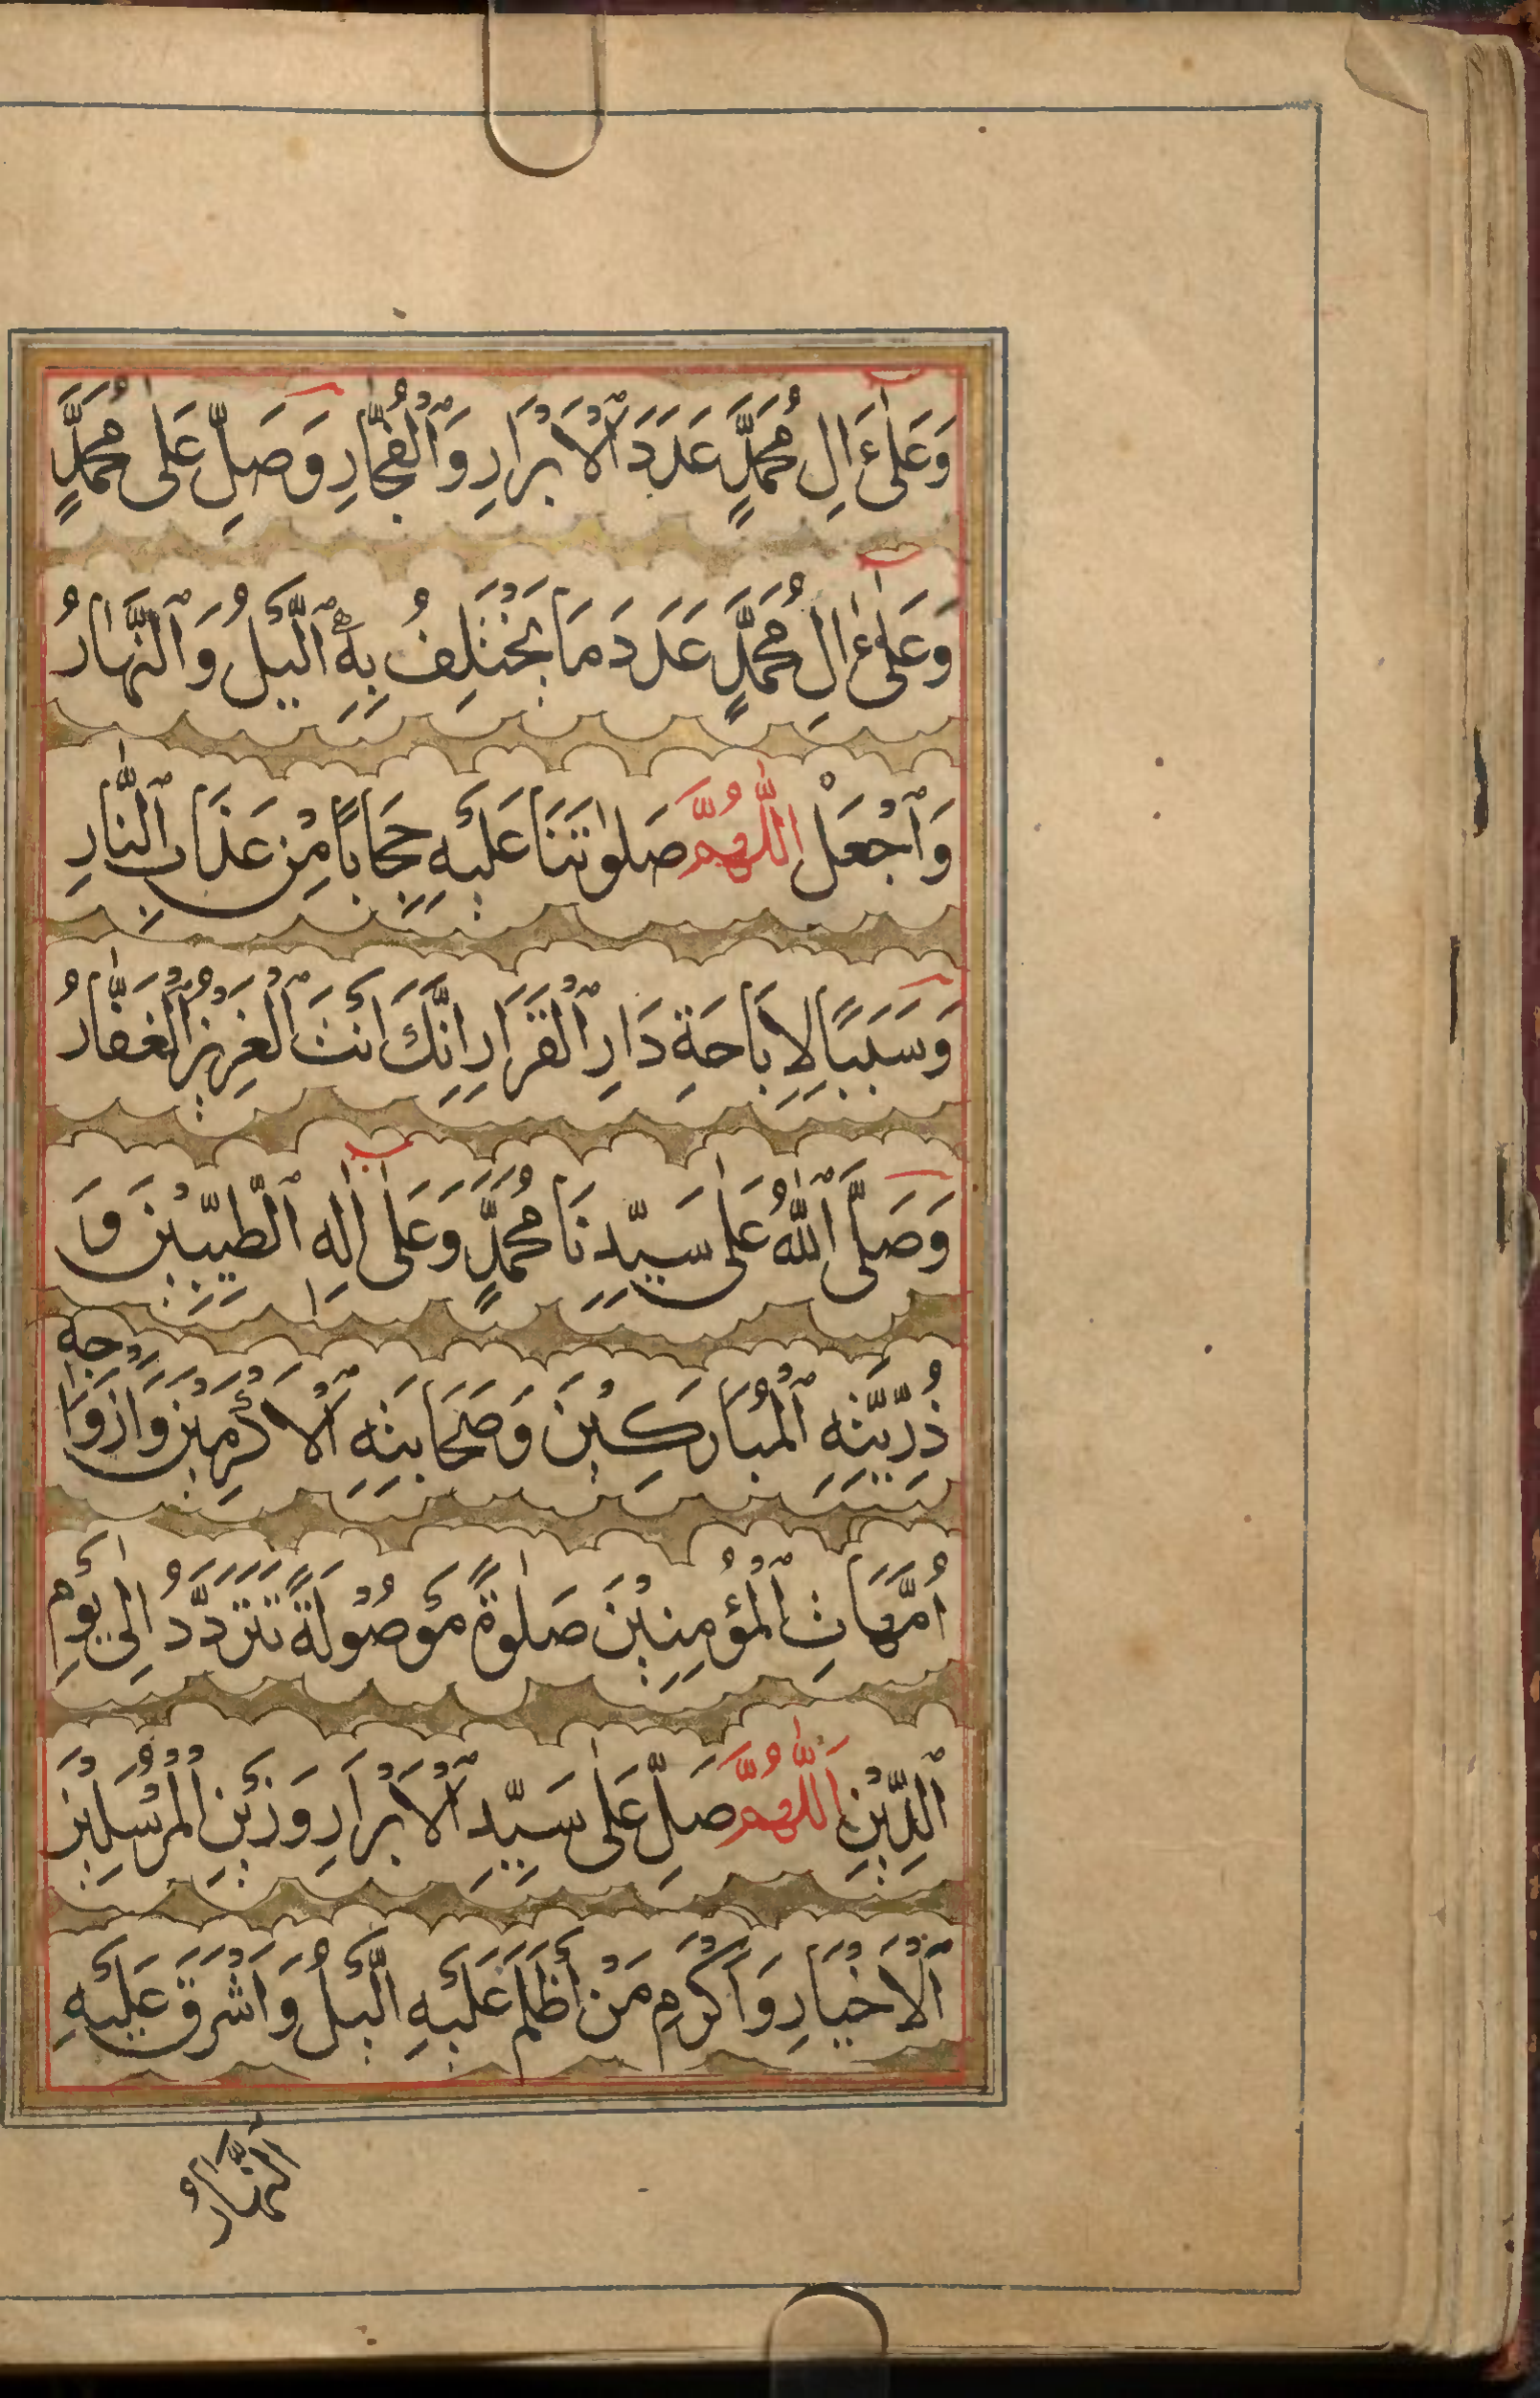 وَعَلٰٓى اٰلِ مُحَمَّدٍ عَدَدَ ٱلْاَبْرَارِ وَٱلْفُجَّارِ وَصَلِّ عَلٰى مُحَمَّدٍ
وَعَلٰٓى اٰلِ مُحَمَّدٍ عَدَدَ مَا يَخْتَلِفُ بِهِ ٱلَّيْلُ وَٱلنَّهَارُ
وَٱجْعَلْ اللّٰهُمَّ صَلٰوتَنَا عَلَيْهِ حِجَابًا مِنْ عَذَابِ ٱلنَّارِ
وَسَبَبًا لِاِبَاحَةِ دَارِ ٱلْقَرَارِ اِنَّكَ اَنْتَ ٱلْعَزِيْزُ ٱلْغَفَّارُ
وَصَلَّى ٱللّٰهُ عَلٰى سَيِّدِنَا مُحَمَّدٍ وَعَلٰٓى اٰلِهِ ٱلطَّيِّبِيْنَ وَ
ذُرِّيَّتِهِ ٱلْمُبَارَكِيْنَ وَصَحَابَتِهِ ٱلْاَكْرَمِيْنَ وَاَزْوَاجِهِ
اُمَّهَاتِ ٱلْمُؤْمِنِيْنَ صَلٰوةً مَوْصُوْلَةً تَتَرَدَّدُ اِلٰى يَوْمِ
ٱلدِّيْنِ اَللّٰهُمَّ صَلِّ عَلٰى سَيِّدِ ٱلْاَبْرَارِ وَزَيْنِ الْمُرْسَلِيْنَ
ٱلْاَخْيَارِ وَاَكْرَمِ مَنْ اَظْلَمَ عَلَيْهِ الَّيْلُ وَاَشْرَقَ عَلَيْهِ
النَّهَارُ